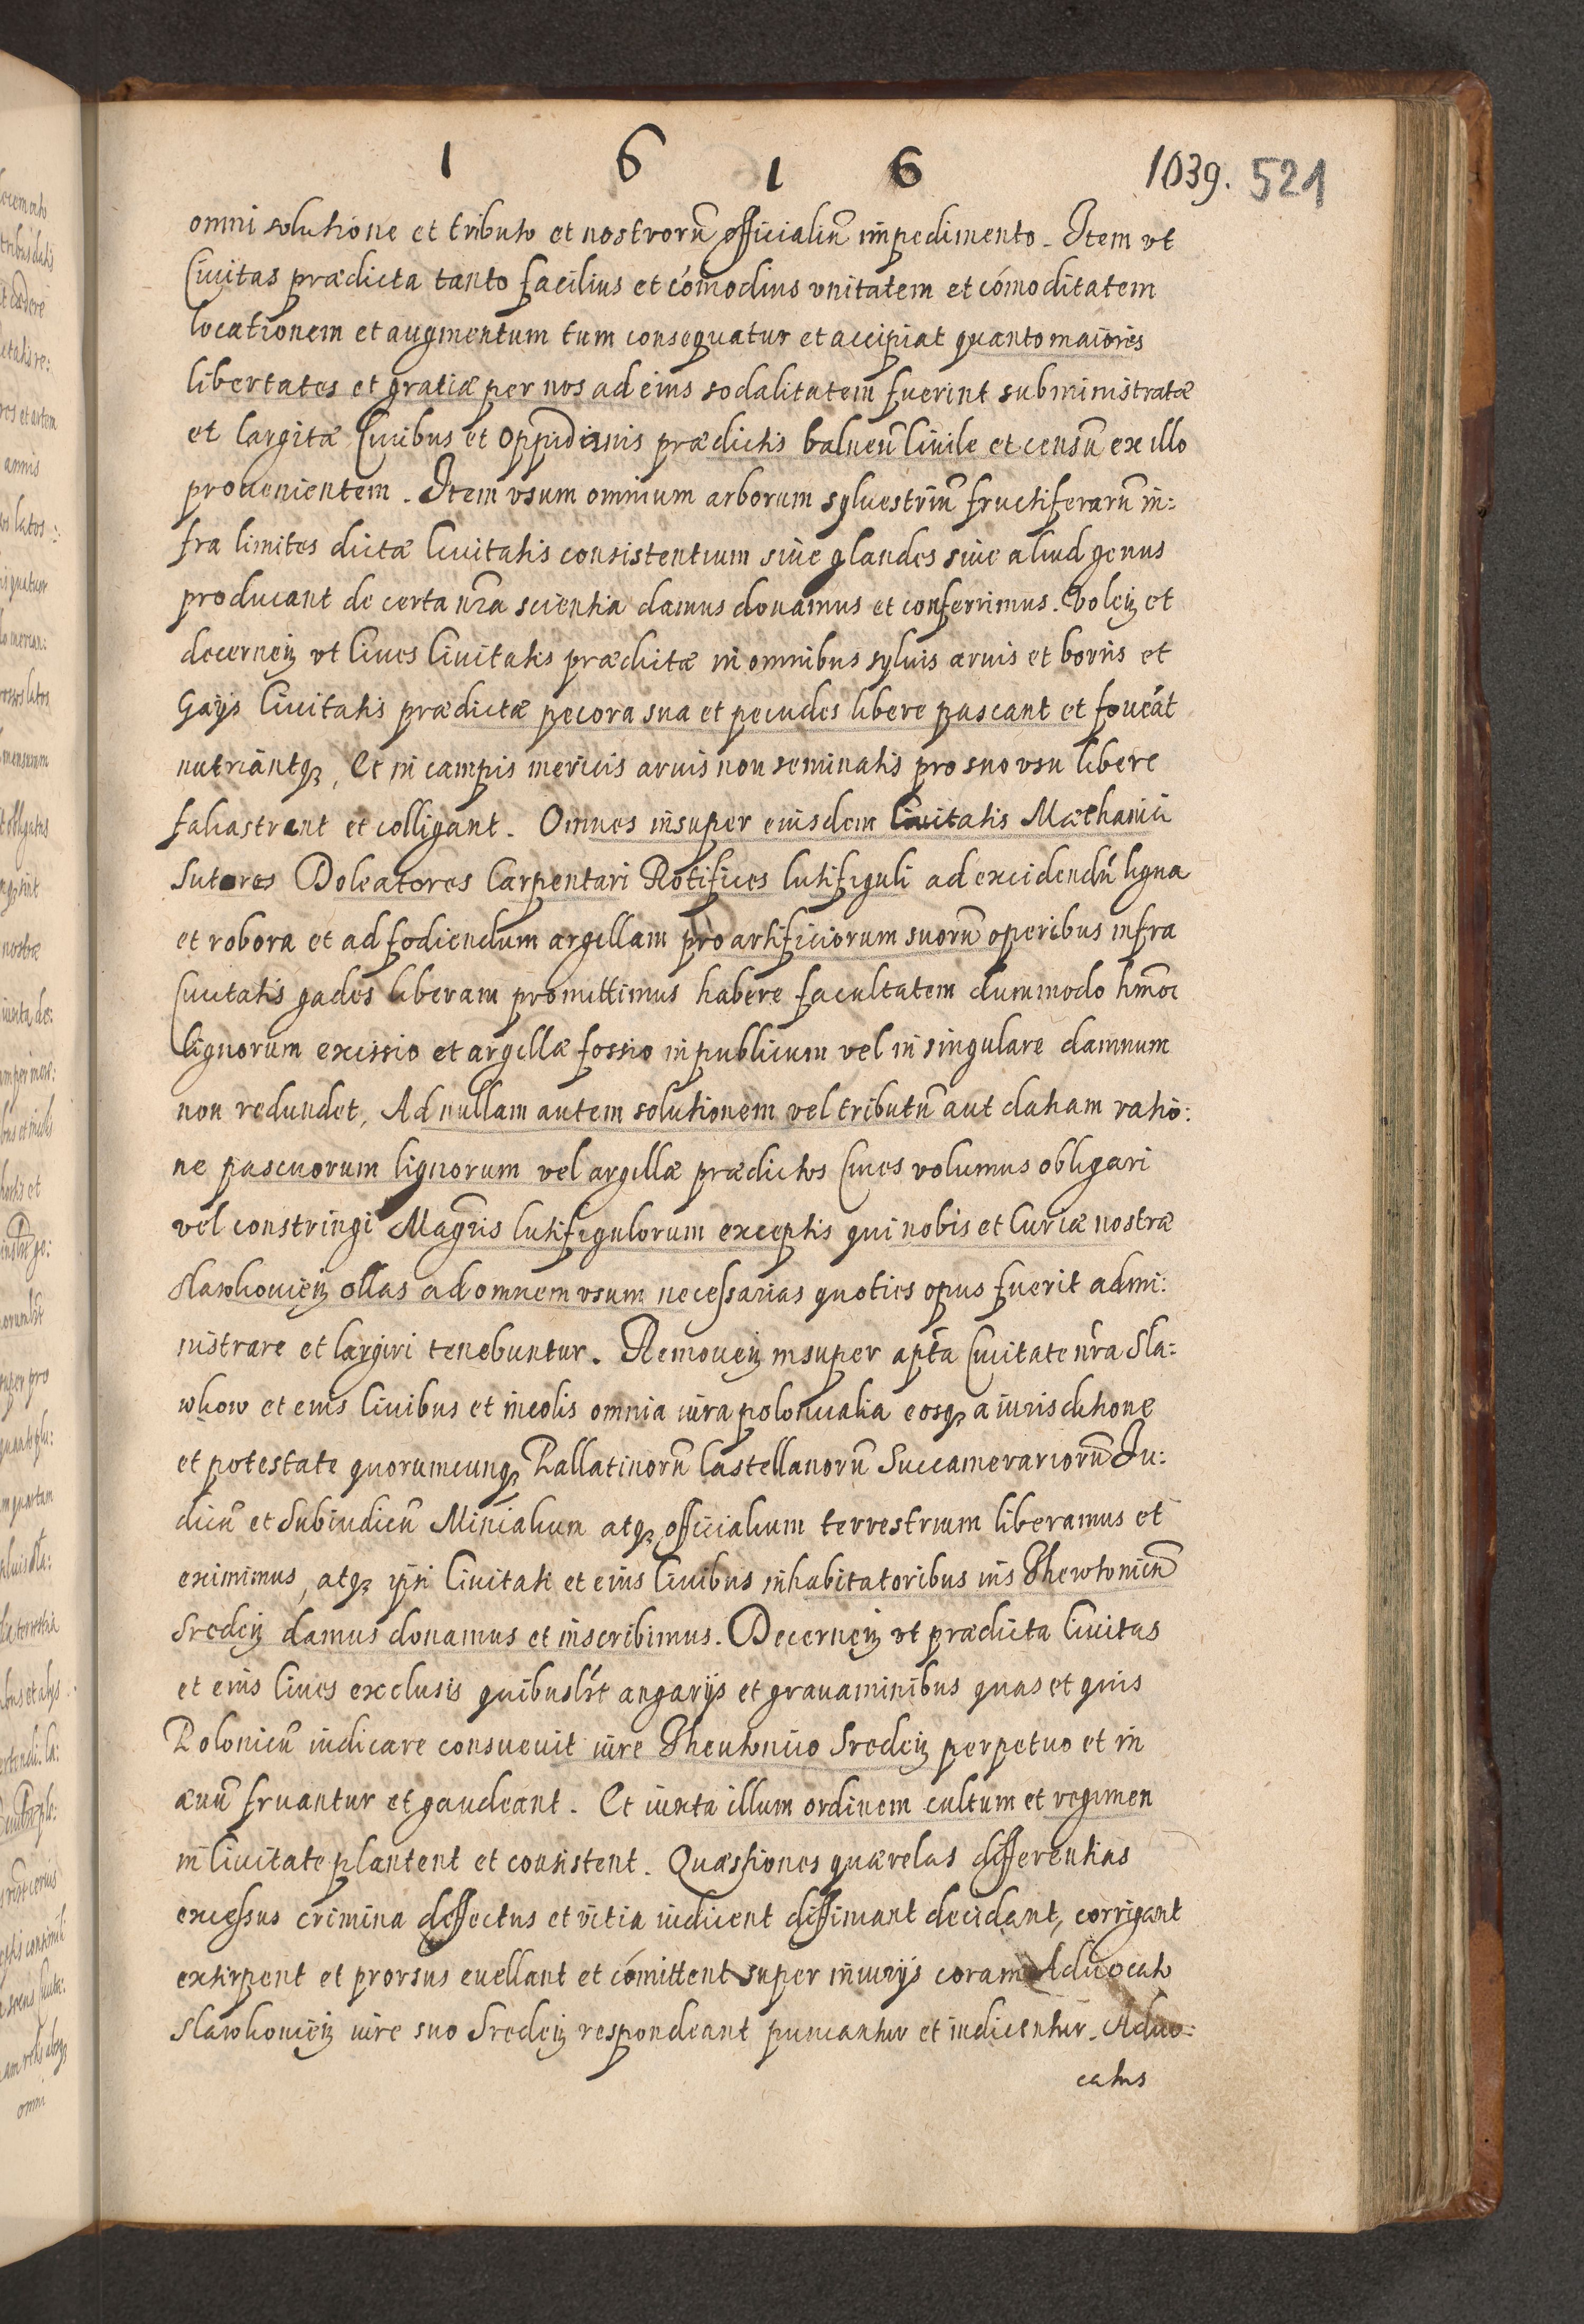 1 6 1 6
1039. 521
omni solutione et tributo et nostrorũ officialiũ impedimento. Item vt
Ciuitas prædicta tanto facilius et cómodius vnitatem et cómoditatem
locationem et augmentum tum consequatur et accipiat quanto maiores
libertates et gratiæ per nos ad eius sodalitatem fuerint subministratæ
et largitæ Ciuibus et Oppidanis prædictis balneũ Ciuile et censũ ex illo
prouenientem. Item vsum omnium arborum syluestriũ fructiferarũ in:
fra limites dictæ Ciuitatis consistentium siue glandes siue aliud genus
producant de certa nr̃a scientia damus donamus et conferrimus. Volen̄ et
decernen̄ vt Ciues Ciuitatis prædictæ in omnibus syluis aruis et borris et
Gays Ciuitatis prædictæ pecora sua et pecudes libere pascant et foueát
nutriantqꝫ, Et in campis mericis aruis non seminatis pro suo vsu libere
falcastrent et colligant. Omnes insuper eiusdem Ciuitatis Mæchanici
Sutores Doleatores Carpentari Rotifices lutifiguli ad excidendũ ligna
et robora et ad fodiendum argillam pro artificiorum suorũ operibus infra
Ciuitatis gades liberam promittimus habere facultatem dummodo hm̃oi
lignorum excissio et argillæ fossio in publicum vel in singulare damnum
non redundet, Ad nullam autem solutionem vel tributũ aut datiam ratio:
ne pascuorum lignorum vel argillæ prædictos Ciues volumus obligari
vel constringi Magr̃is lutifigulorum exceptis qui nobis et Curiæ nostræ
Slawkouien̄ ollas ad omnem vsum necessarias quoties opus fuerit admi:
nistrare et largiri tenebuntur. Remouen̄ insuper a pta Ciuitate nr̃a Sla:
wkow et eius Ciuibus et incolis omnia iura polonicalia eosqꝫ a iurisdictione
et potestate quorumcunqꝫ Pallatinorũ Castellanorũ Succamerariorũ Iu:
dicũ et Subiudicũ Minialium atqꝫ officialium terrestrium liberamus et
eximimus, atqꝫ ipsi Ciuitati et eius Ciuibus inhabitatoribus ius Thewtonicũ
Sreden̄ damus donamus et inscribimus. Decernen̄ vt prædicta Ciuitas
et eius Ciues exclusis quibuslt́ angarijs et grauaminibus quas et quis
Polonicũ iudicare consueuit iure Theutonico Sreden̄ perpetuo et in
æuũ fruantur et gaudeant. Et iuxta illum ordinem cultum et regimen
in Ciuitate plantent et consistent. Quæstiones quærelas differentias
excessus crimina deffectus et vitia iudicent diffiniant decidant, corrigant
extirpent et prorsus euellant et cómittent super iniurijs coram Aduocato
Slawkouien̄ iure suo Sreden̄ respondeant puniantur et iudicentur. Aduo:
catus